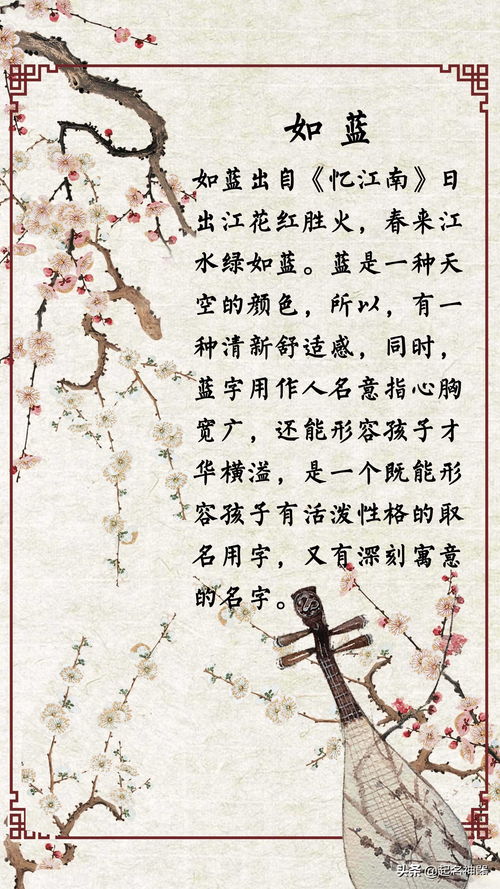 如蓝
如蓝出自《忆江南》日
出江花红胜火，春来江
水绿如蓝。蓝是一种天
空的颜色，所以，有一
种清新舒适感，同时，
蓝字用作人名意指心胸
宽广，还能形容孩子才
华横溢，是一个既能形
容孩子有活泼性格的取
名用字，又有深刻寓意
的名字。
头条@起名神器